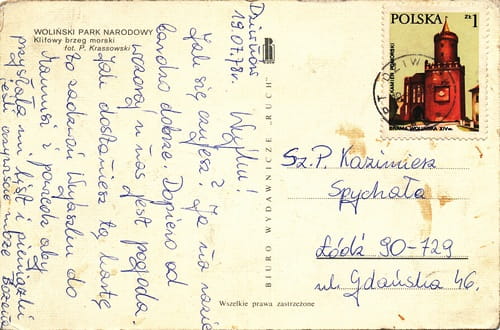 WOLIŃSKI PARK NARODOWY
Klifowy brzeg morski
fot. P. Krassowski
Dziwnów
19.07.78r.
Wujku!
Jak się czujesz? Ja na razie
bardzo dobrze. Dopiero od
wczoraj u nas jest pogoda.
Jak dostaniesz tą kartę
to zadzwoń Wujaszku do
Mamusi i powiedz aby
przysłała mi list i pieniążki
jeśli oczywiście może Bożena
BIURO WYDAWNICZE „RUCH”
Wszelkie prawa zastrzeżone
POLSKA zł 1
BRAMA WOLIŃSKA XIV w.
Sz. P. Kazimierz
Spychała
Łódź 90-729
ul. Gdańska 46.